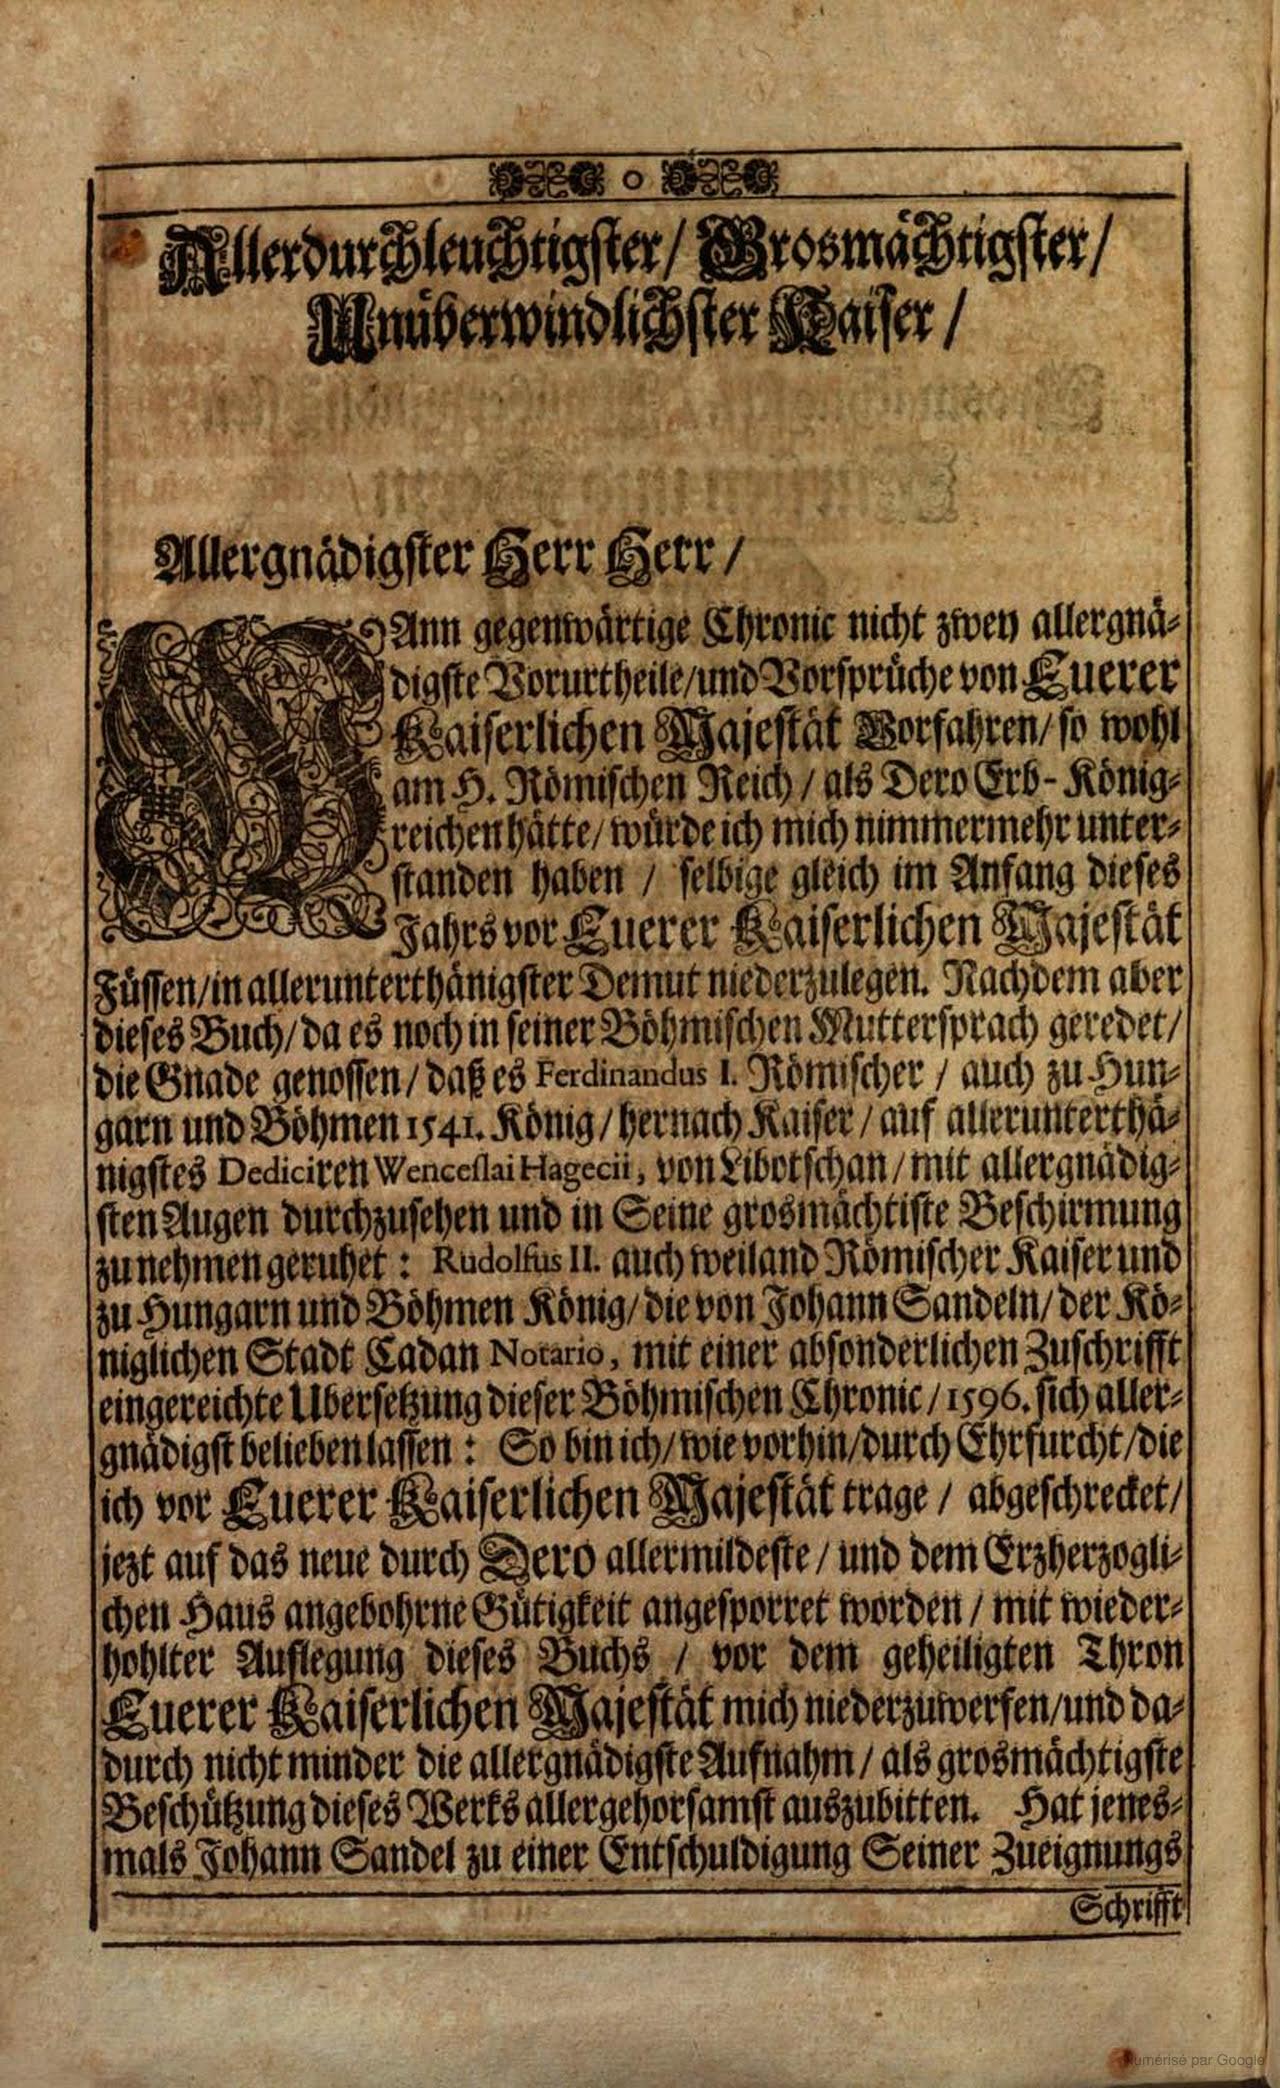 Allerdurchleuchtigster/ Grosmächtigster/
Unüberwindlichster Kaiser/
Allergnädigster Herr Herr/
WAnn gegenwärtige Chronic nicht zwey allergnä-
digste Vorurtheile/und Vorsprüche von Euerer
Kaiserlichen Majestät Vorfahren/ so wohl
am H. Römischen Reich / als Dero Erb-König-
reichen hätte/ würde ich mich nimmermehr unter-
standen haben / selbige gleich im Anfang dieses
Jahrs vor Euerer Kaiserlichen Majestät
Füssen/in allerunterthänigster Demut niederzulegen. Nachdem aber
dieses Buch/ da es noch in seiner Böhmischen Muttersprach geredet/
die Gnade genossen/ daß es Ferdinandus I. Römischer / auch zu Hun-
garn und Böhmen 1541. König/ hernach Kaiser/ auf allerunterthä-
nigstes Dediciren Wenceslai Hagecii, von Libotschan/ mit allergnädig-
sten Augen durchzusehen und in Seine grosmächtiste Beschirmung
zu nehmen geruhet: Rudolfus II. auch weiland Römischer Kaiser und
zu Hungarn und Böhmen König/ die von Johann Sandeln/ der Kö-
niglichen Stadt Cadan Notario, mit einer absonderlichen Zuschrifft
eingereichte Ubersetzung dieser Böhmischen Chronic/ 1596. sich aller-
gnädigst belieben lassen: So bin ich/ wie vorhin/durch Ehrfurcht/die
ich vor Euerer Kaiserlichen Majestät trage / abgeschrecket/
jezt auf das neue durch Dero allermildeste/ und dem Erzherzogli-
chen Haus angebohrne Gütigkeit angesporret worden / mit wieder-
hohlter Auflegung dieses Buchs / vor dem geheiligten Thron
Euerer Kaiserlichen Majestät mich niederzuwerfen/und da-
durch nicht minder die allergnädigste Aufnahm / als grosmächtigste
Beschützung dieses Werks allergehorsamst auszubitten. Hat jenes-
mals Johann Sandel zu einer Entschuldigung Seiner Zueignungs
Schrifft
Numérisé par Google